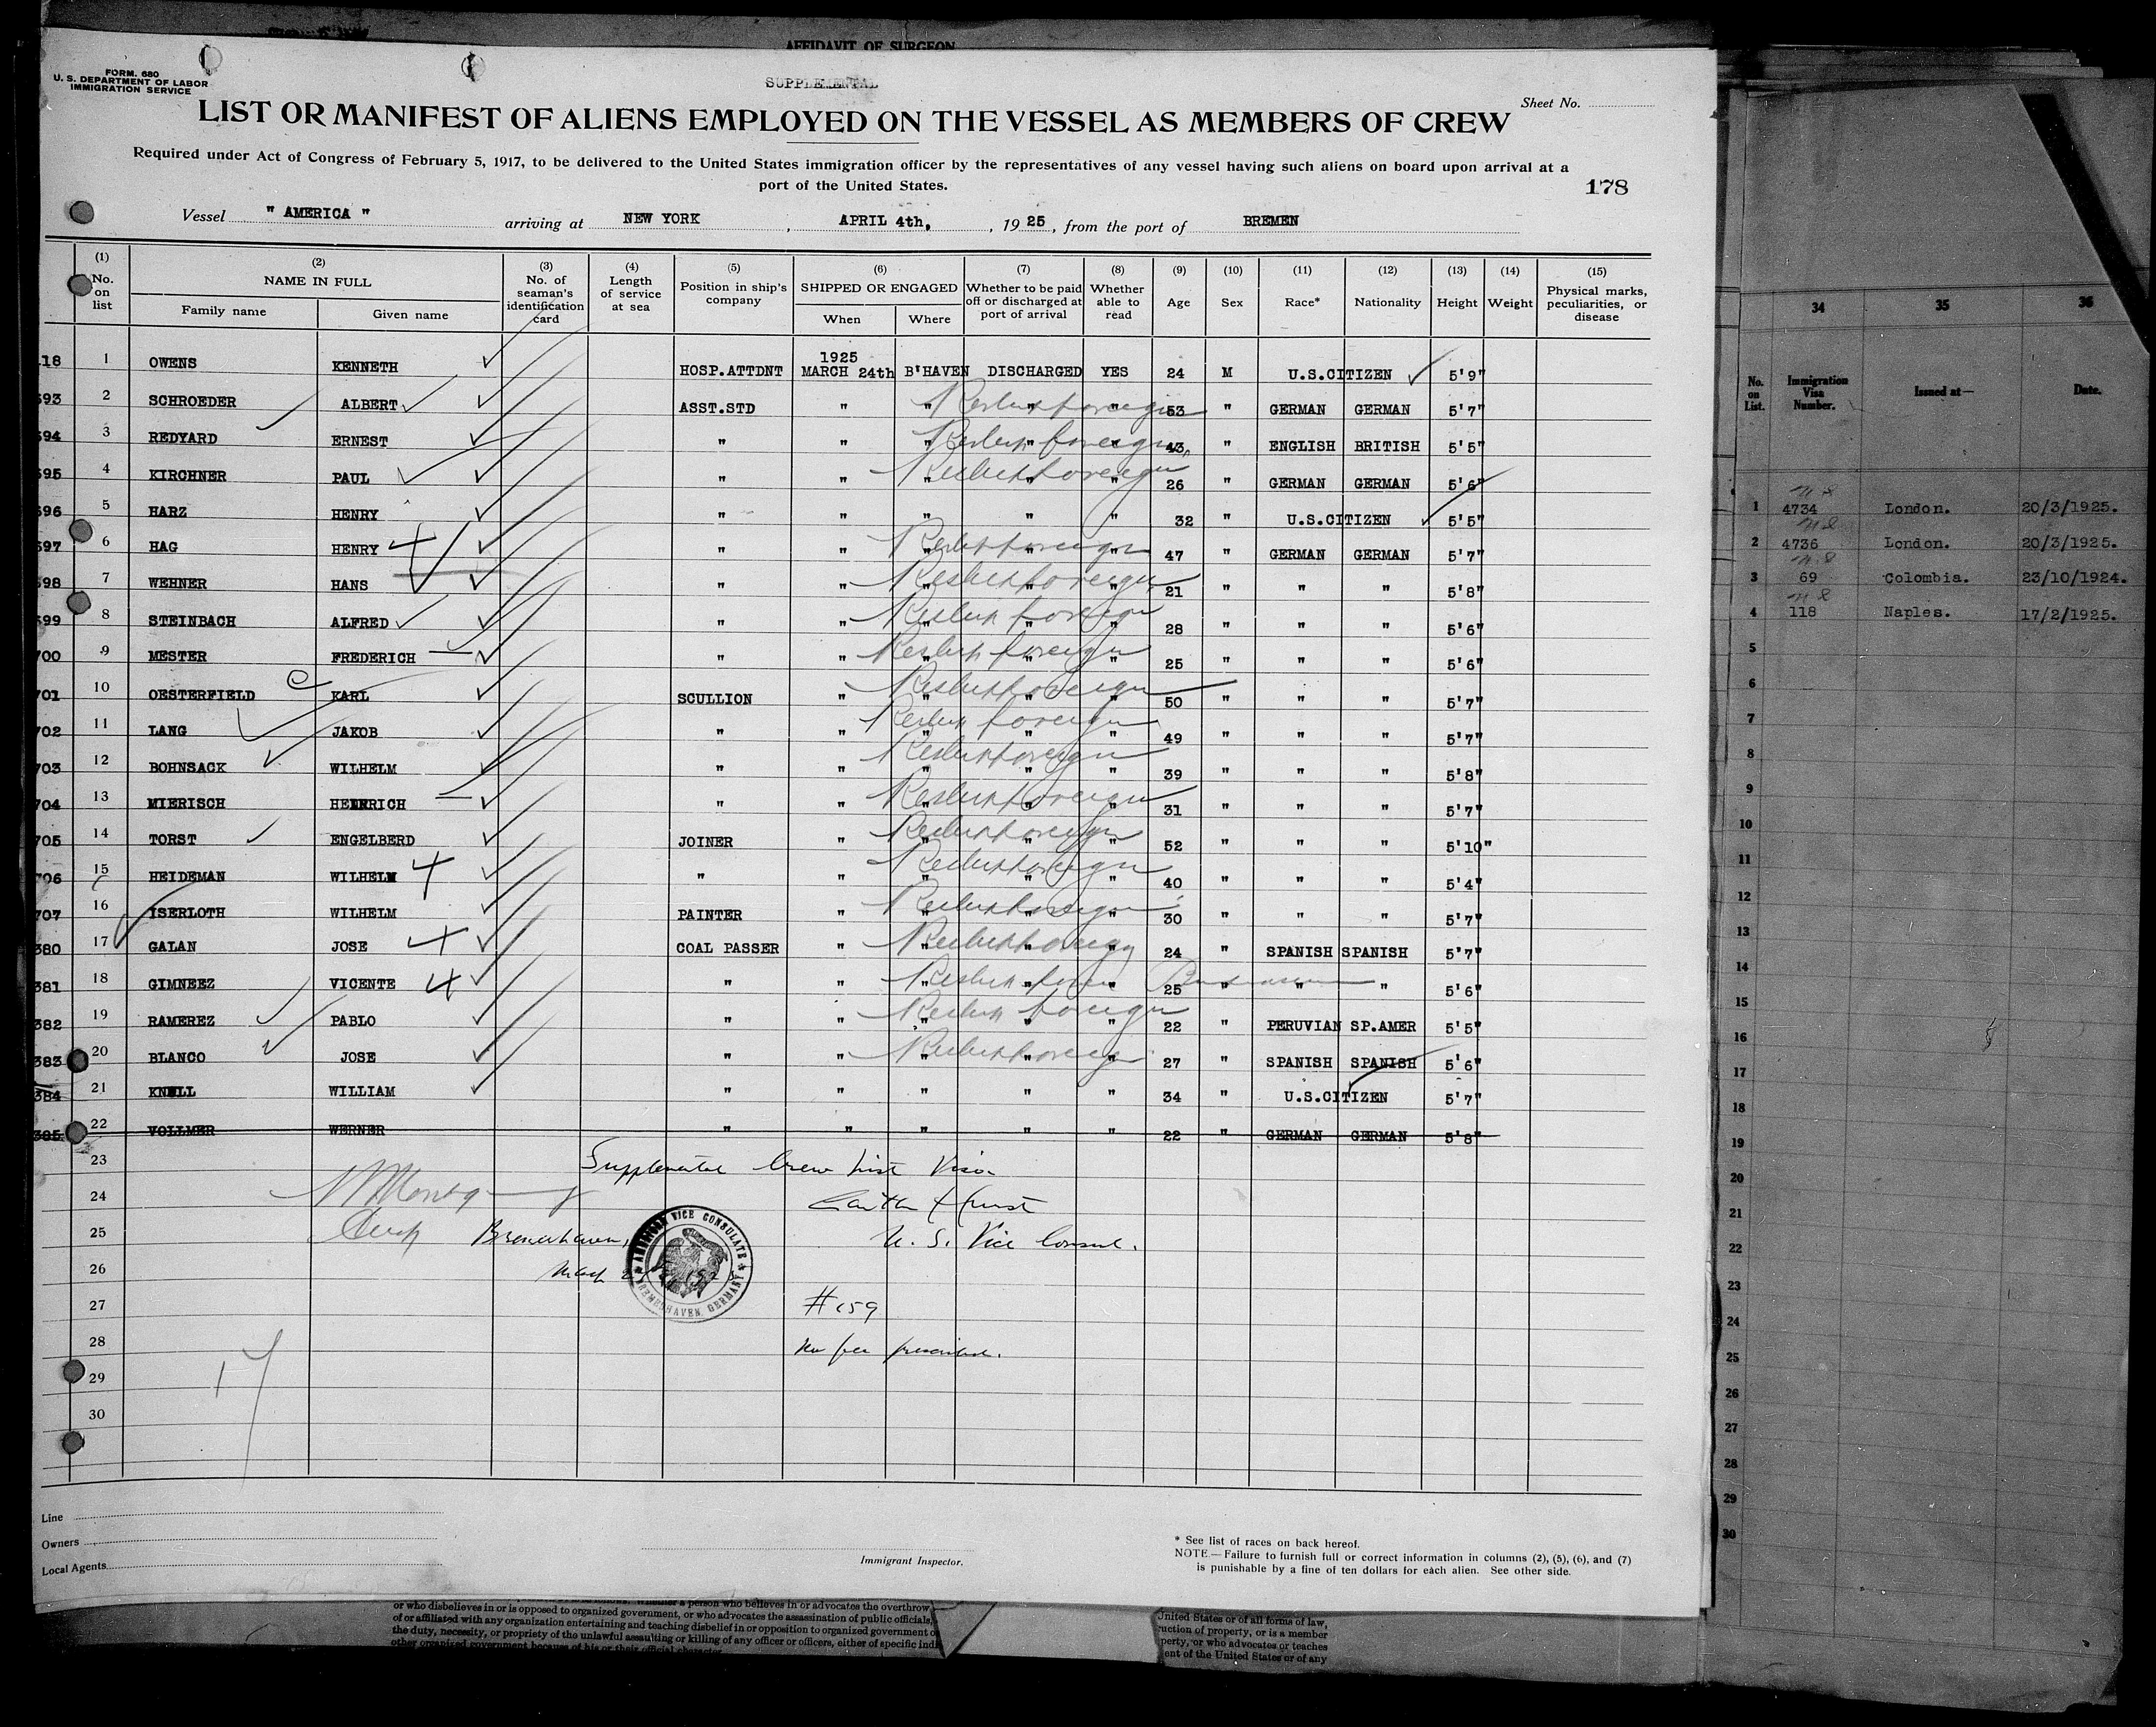 AFFIDAVIT OF SURGEON
FORM. 680
U. S. DEPARTMENT OF LABOR
IMMIGRATION SERVICE
SUPPLEMENTAL
Sheet No.
LIST OR MANIFEST OF ALIENS EMPLOYED ON THE VESSEL AS MEMBERS OF CREW
Required under Act of Congress of February 5, 1917, to be delivered to the United States immigration officer by the representatives of any vessel having such aliens on board upon arrival at a
port of the United States.
178
Vessel " AMERICA " arriving at NEW YORK , APRIL 4th, , 1925 , from the port of BREMEN
(1) No. on list (2) NAME IN FULL Family name Given name (3) No. of seaman's identification card (4) Length of service at sea (5) Position in ship's company (6) SHIPPED OR ENGAGED When Where (7) Whether to be paid off or discharged at port of arrival (8) Whether able to read (9) Age (10) Sex (11) Race* (12) Nationality (13) Height (14) Weight (15) Physical marks, peculiarities, or disease
118 1 OWENS KENNETH HOSP.ATTDNT 1925 MARCH 24th B'HAVEN DISCHARGED YES 24 M U.S.CITIZEN 5'9"
693 2 SCHROEDER ALBERT ASST.STD " " " " 53 " GERMAN GERMAN 5'7" Reship foreign
694 3 REDYARD ERNEST " " " " " 43 " ENGLISH BRITISH 5'5" Reship foreign
695 4 KIRCHNER PAUL " " " " " 26 " GERMAN GERMAN 5'6" Reship foreign
696 5 HARZ HENRY " " " " " 32 " U.S.CITIZEN 5'5"
697 6 HAG HENRY " " " " " 47 " GERMAN GERMAN 5'7" Reship foreign
698 7 WEHNER HANS " " " " " 21 " " " 5'8" Reship foreign
699 8 STEINBACH ALFRED " " " " " 28 " " " 5'6" Reship foreign
700 9 MESTER FREDERICH " " " " " 25 " " " 5'6" Reship foreign
701 10 OESTERFIELD KARL SCULLION " " " " 50 " " " 5'7" Reship foreign
702 11 LANG JAKOB " " " " " 49 " " " 5'7" Reship foreign
703 12 BOHNSACK WILHELM " " " " " 39 " " " 5'8" Reship foreign
704 13 MIERISCH HEINRICH " " " " " 31 " " " 5'7" Reship foreign
705 14 TORST ENGELBERD JOINER " " " " 52 " " " 5'10" Reship foreign
706 15 HEIDEMAN WILHELM " " " " " 40 " " " 5'4" Reship foreign
707 16 ISERLOTH WILHELM PAINTER " " " " 30 " " " 5'7" Reship foreign
380 17 GALAN JOSE COAL PASSER " " " " 24 " SPANISH SPANISH 5'7" Reship foreign
381 18 GIMNEEZ VICENTE " " " " " 25 " " " 5'6" Reship foreign
382 19 RAMEREZ PABLO " " " " " 22 " PERUVIAN SP.AMER 5'5" Reship foreign
383 20 BLANCO JOSE " " " " " 27 " SPANISH SPANISH 5'6" Reship foreign
384 21 KNELL WILLIAM " " " " " 34 " U.S.CITIZEN 5'7"
385 22 VOLLMER WERNER " " " " " 22 " GERMAN GERMAN 5'8"
23 Supplemental Crew List Visa
24
25 Bremerhaven, U. S. Vice Consul.
26 March
AMERICAN VICE CONSULATE
BREMERHAVEN GERMANY
27 #159
28 No fee prescribed.
29 17
30
Line
Owners
Local Agents
Immigrant Inspector.
* See list of races on back hereof.
NOTE.—Failure to furnish full or correct information in columns (2), (5), (6), and (7)
is punishable by a fine of ten dollars for each alien. See other side.
34 35 36
No. on List. Immigration Visa Number. Issued at— Date.
1 4734 London. 20/3/1925.
2 4736 London. 20/3/1925.
3 69 Colombia. 23/10/1924.
4 118 Naples. 17/2/1925.
5
6
7
8
9
10
11
12
13
14
15
16
17
18
19
20
21
22
23
24
25
26
27
28
29
30
or who disbelieves in or is opposed to organized government, or who advocates the assassination of public officials,
of or affiliated with any organization entertaining and teaching disbelief in or opposition to organized government o
the duty, necessity, or propriety of the unlawful assaulting or killing of any officer or officers, either of specific indi
other organized government because of his or their official character
United States or of all forms of law,
uction of property, or is a member
perty, or who advocates or teaches
ent of the United States or of any